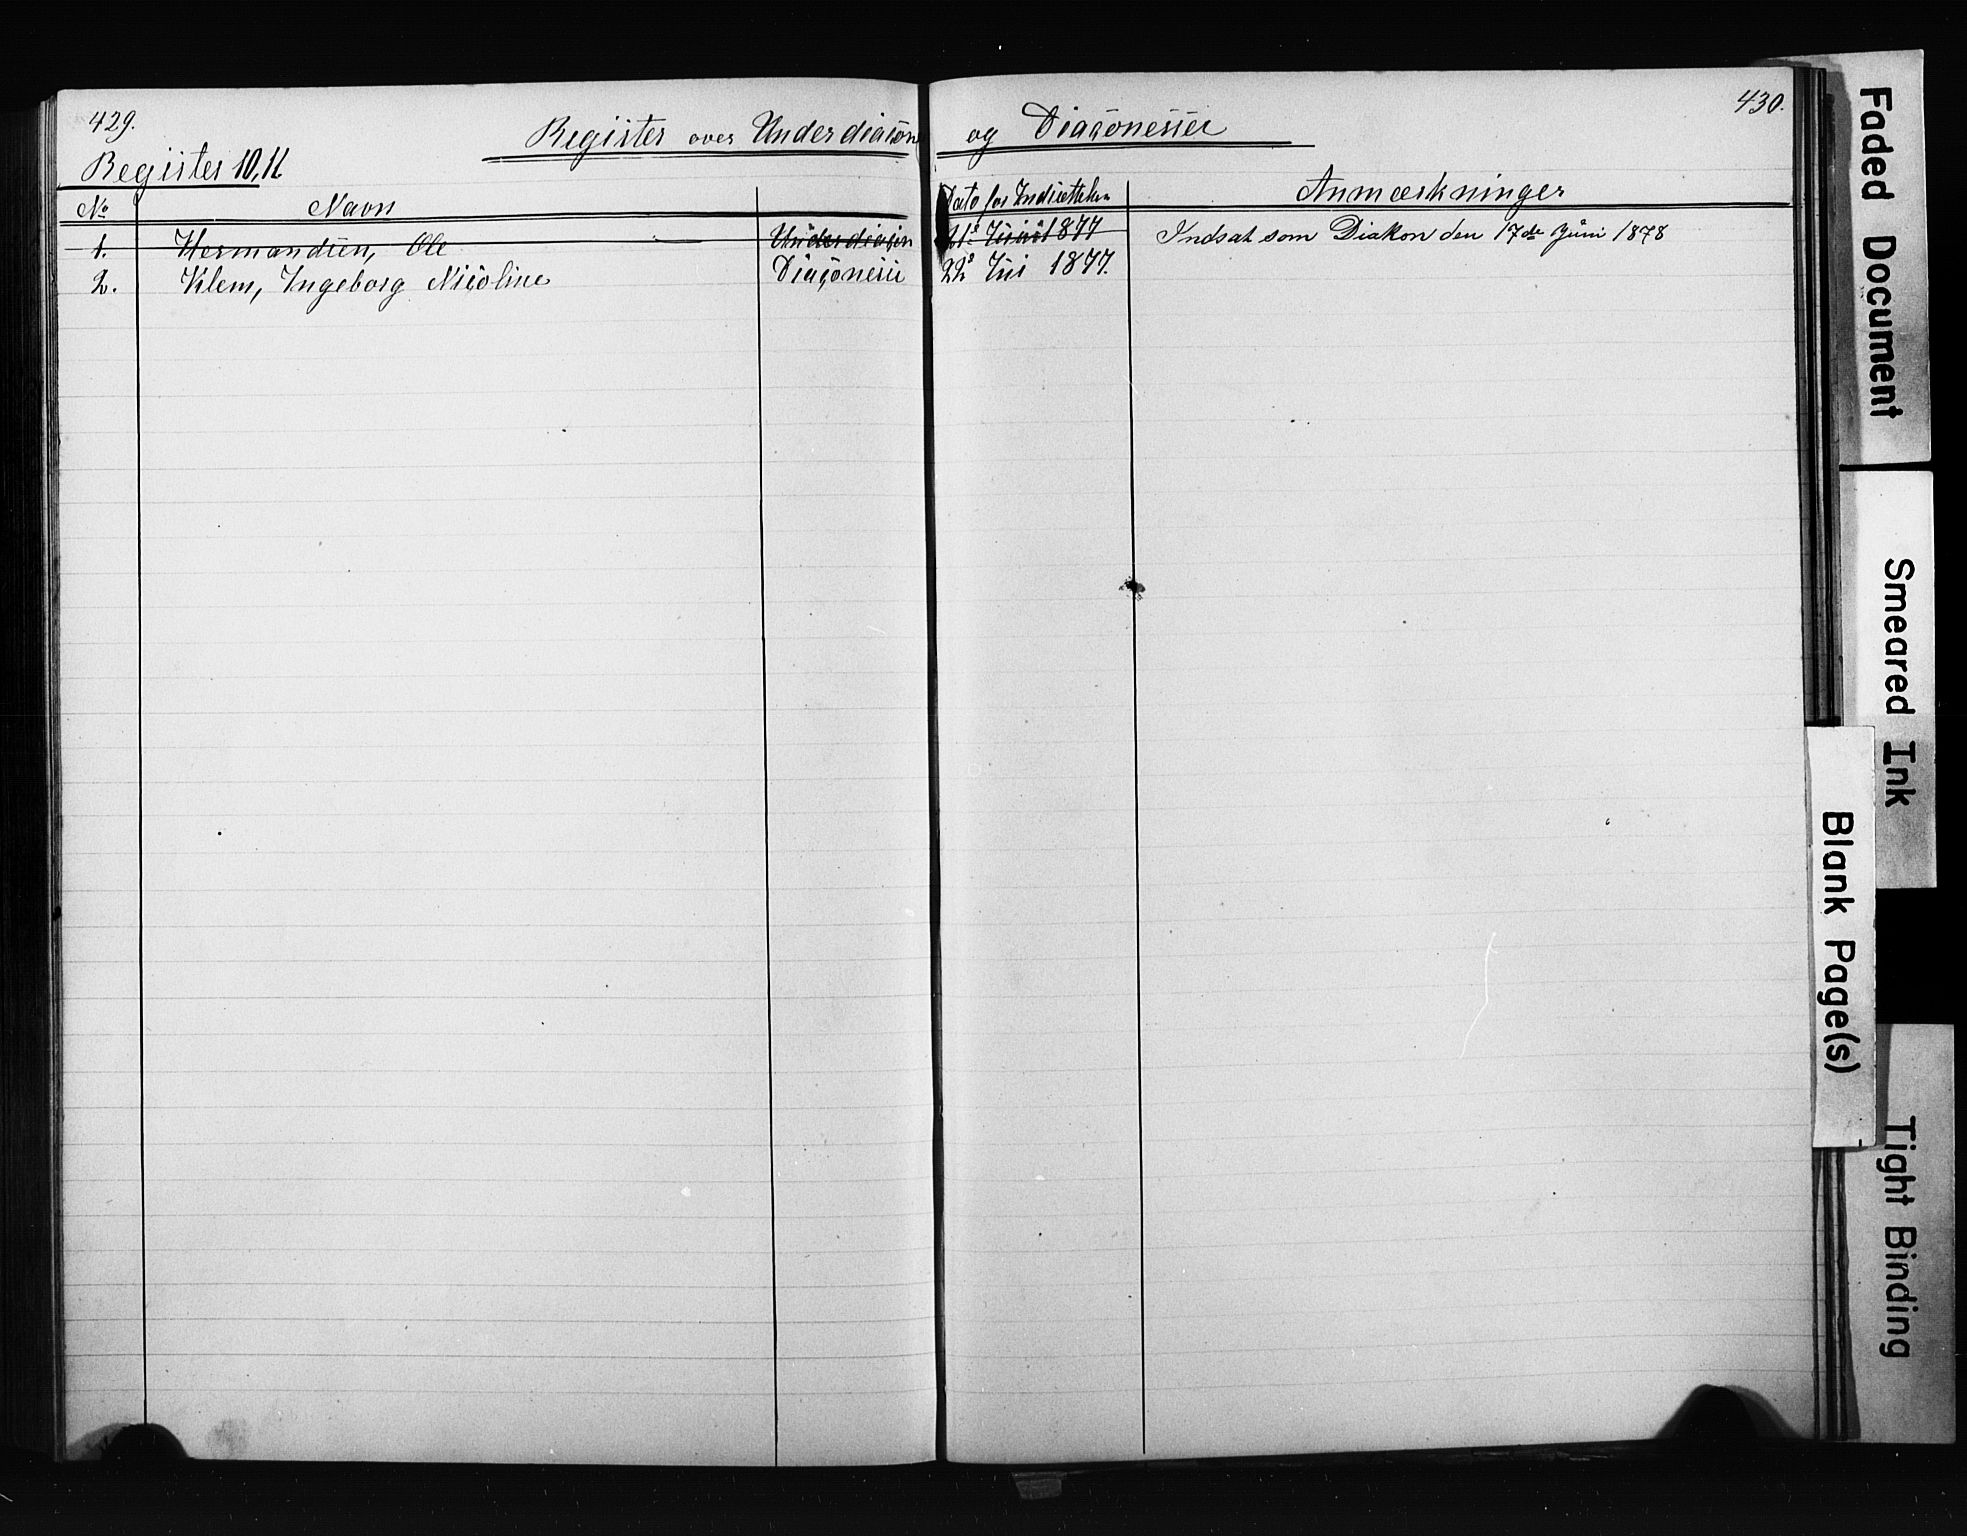 429.
430.
Register over Underdiacon og Diaconesser
Register 10, 11
No Navn Dato for Indsættelsen Anmærkninger
1. Hermandsen, Ole Underdiacon 21s 1877 Indsat som Diakon den 17de Juni 1878
2. Klem, Ingeborg Nicoline Diaconesse 22s 1877.
Faded Document
Smeared Ink
Blank Page(s)
Tight Binding